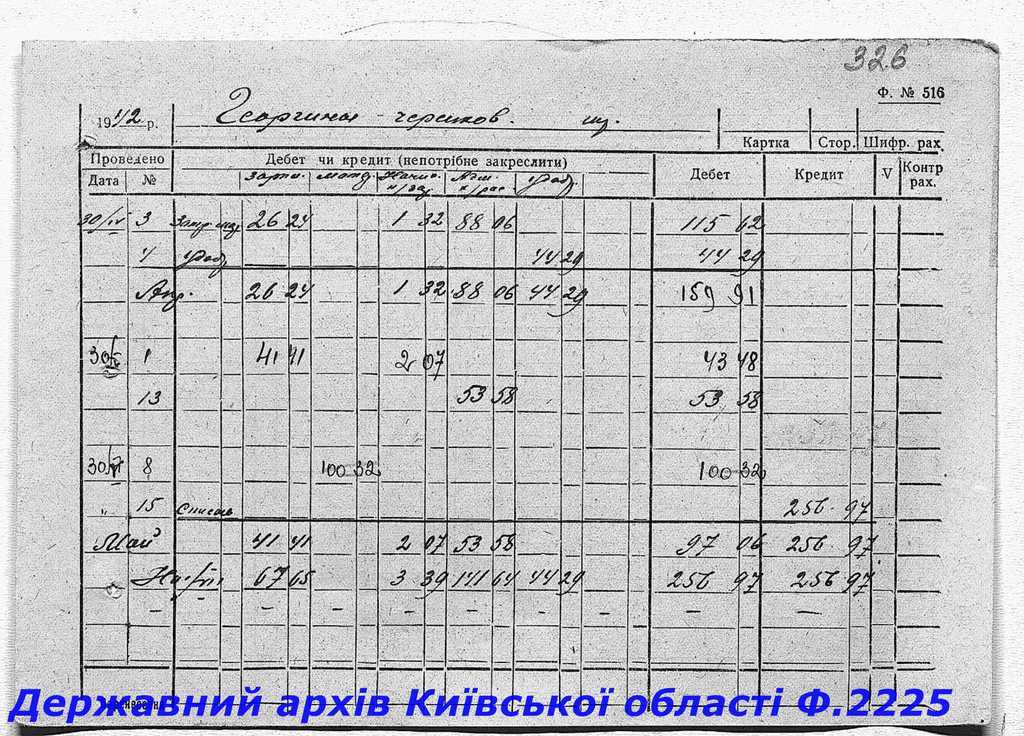 326
Ф. № 516
1942 р. Георгины - черенков.
Картка Стор. Шифр. рах.
Проведено Дебет чи кредит (непотрібне закреслити) Дебет Кредит V Контр рах.
Дата №
30/IV 3 26 24 1 32 88 06 115 62
4 44 29 44 29
Апр. 26 24 1 32 88 06 44 29 159 91
30/V 1 41 41 2 07 43 48
13 53 58 53 58
30/V 8 100 32 100 32
" 15 списать 256 97
Май 41 41 2 07 53 58 97 06 256 97
67 65 3 39 141 64 44 29 256 97 256 97
– – – – – – – –
Державний архів Київської області Ф.2225